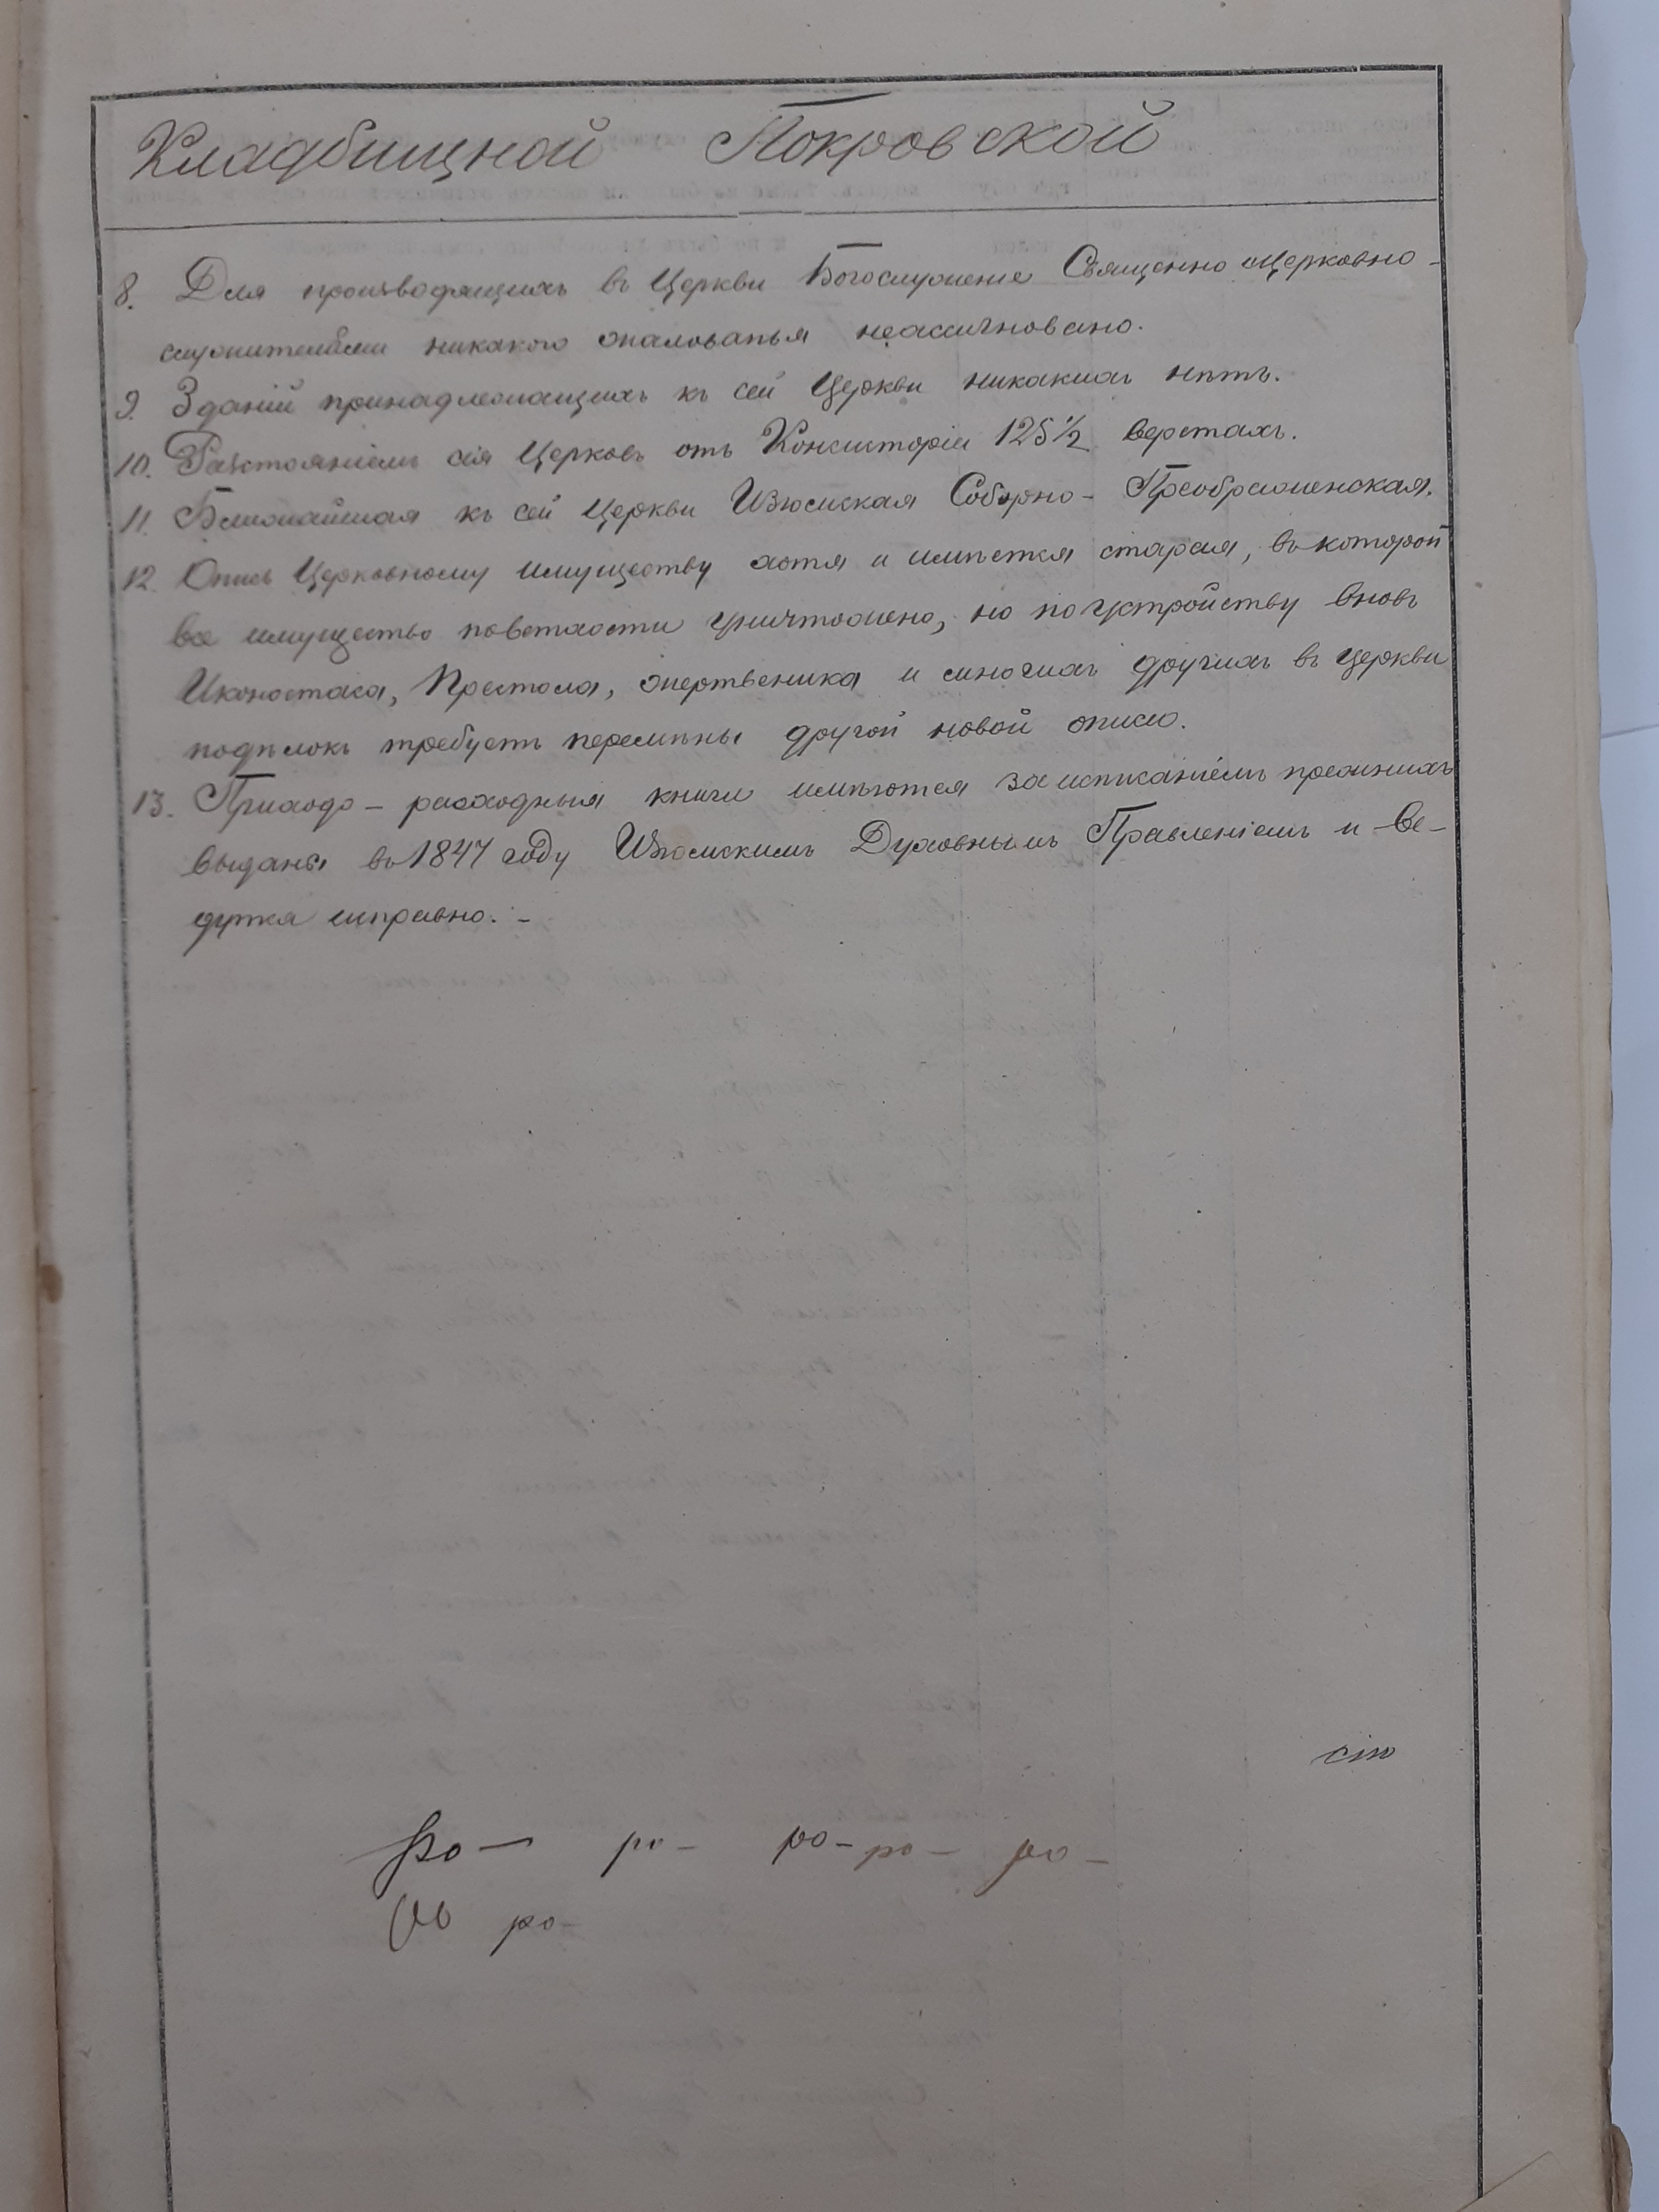 Кладбищной Покровской
8. Для производящихъ въ Церкви Богослуженіе Священно и Церковно-
служителями никакого жалованья неассигновано.
9. Зданій принадлежащихъ къ сей Церкви никакихъ нѣтъ.
10. Разстояніемъ сія Церковь отъ Консисторіи 125 1/2 верстахъ.
11. Ближайшая къ сей Церкви Изюмская Соборно-Преображенская.
12. Опись Церковному имуществу хотя и имѣется старая, въ которой
все имущество поветхости уничтожено, но по устройству вновь
Иконостаса, Престола, жертвеника и многихъ другихъ въ Церкви
подѣлокъ требуетъ перемѣны другой новой описи.
13. Приходо-расходныя книги имѣются за исписаніемъ прежнихъ
выданы въ 1847 году Изюмскимъ Духовнымъ Правленіемъ и ве-
дутся исправно. -
сію
ро- ро- ро- ро-
ро-